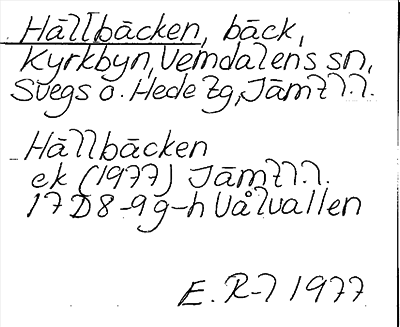 Hällbäcken, bäck,
Kyrkbyn, Vemdalens sn,
Svegs o. Hede tg, Jämtl.l.
Hällbäcken
ek (1977) Jämtl.l.
17D8-9g-h Vålvallen
E. R-l 1977